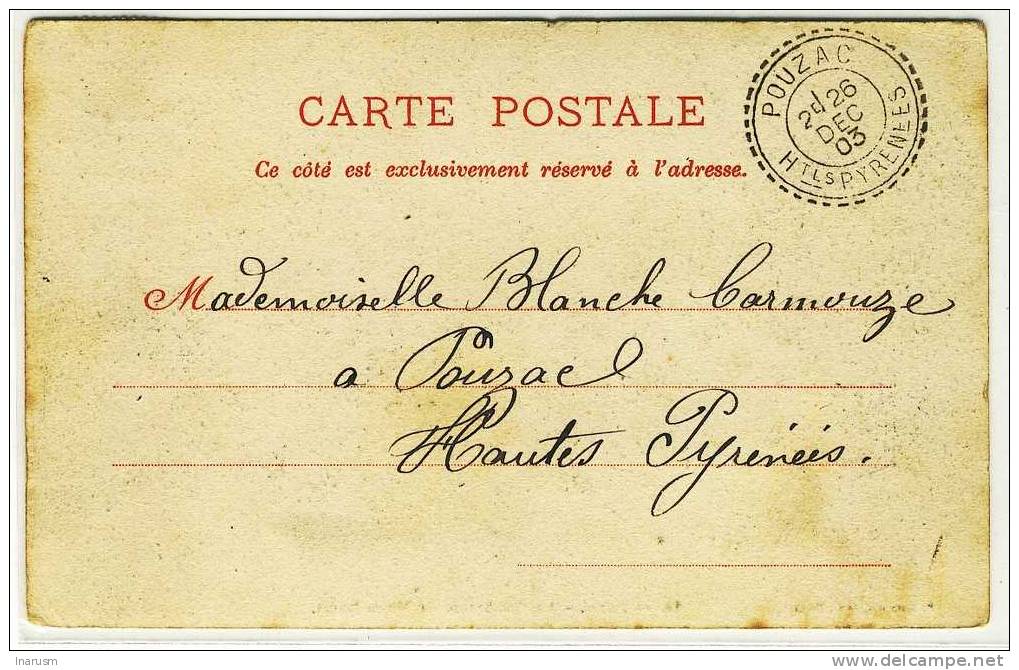 CARTE POSTALE
Ce côté est exclusivement réservé à l'adresse.
POUZAC
2d 26
DEC
03
HTLS PYRENEES
Mademoiselle Blanche Carmouze
a Pouzac
Hautes Pyrénées.
Inarusm
delcampe.net